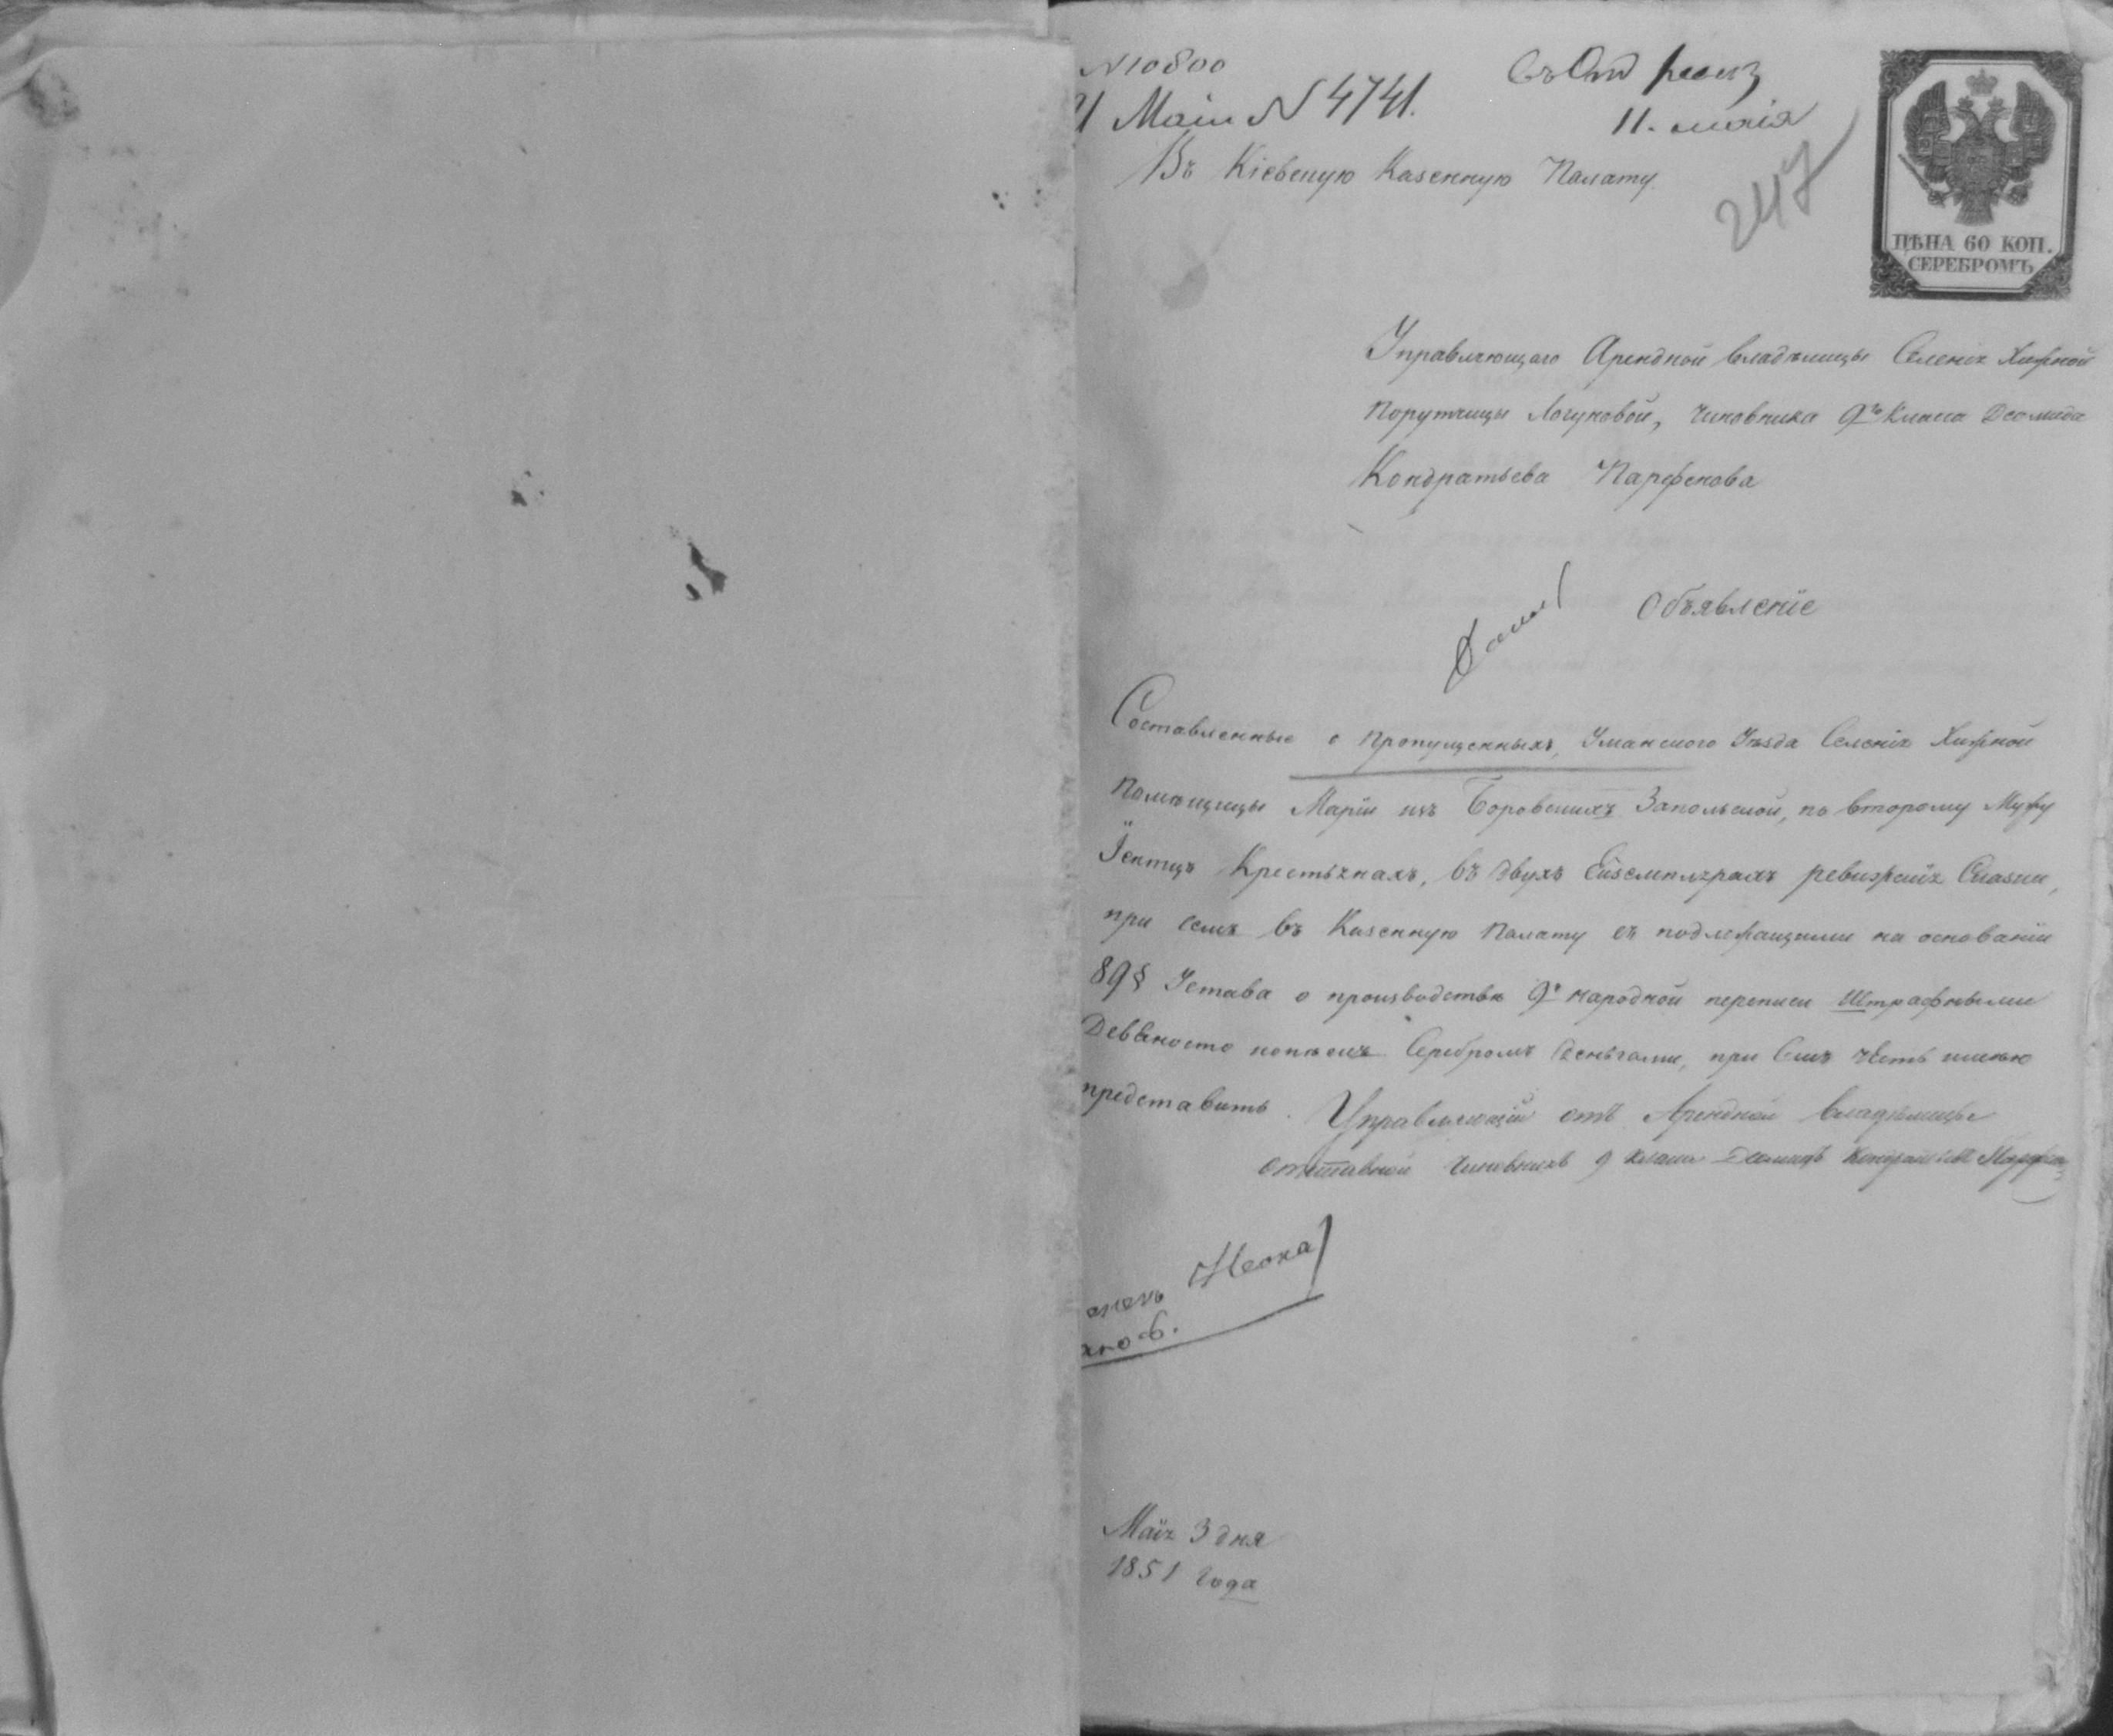 N 10800
Маія N 4741.
11. маія
Въ Кіевскую Казенную Палату
247
ЦѢНА 60 КОП.
СЕРЕБРОМЪ
Управляющаго Арендной владѣлицы Селенія Хижной
Порутчицы Логуновой, Чиновника 9го Класса Деомида
Кондратьева Парфенова
Объявленіе
Составленные о пропущенныхъ, Уманского Уѣзда Селенія Хижной
Помѣщицы Маріи изъ Боровскихъ Запольской, по второму Мужу
Крестьянахъ, въ двухъ Ексемплярахъ ревизскія Сказки,
при семъ въ Казенную Палату съ подлежащими на основаніи
89§ Устава о производствѣ 9й народной переписи Штрафными
Девяносто копѣекъ Серебромъ деньгами, при Семъ честь имѣю
представить.
Управляющій отъ Арендной владѣлицы
отставной Чиновникъ 9 класса Деомидъ Кондратьевъ Парфе
Маія 3 дня
1851 года